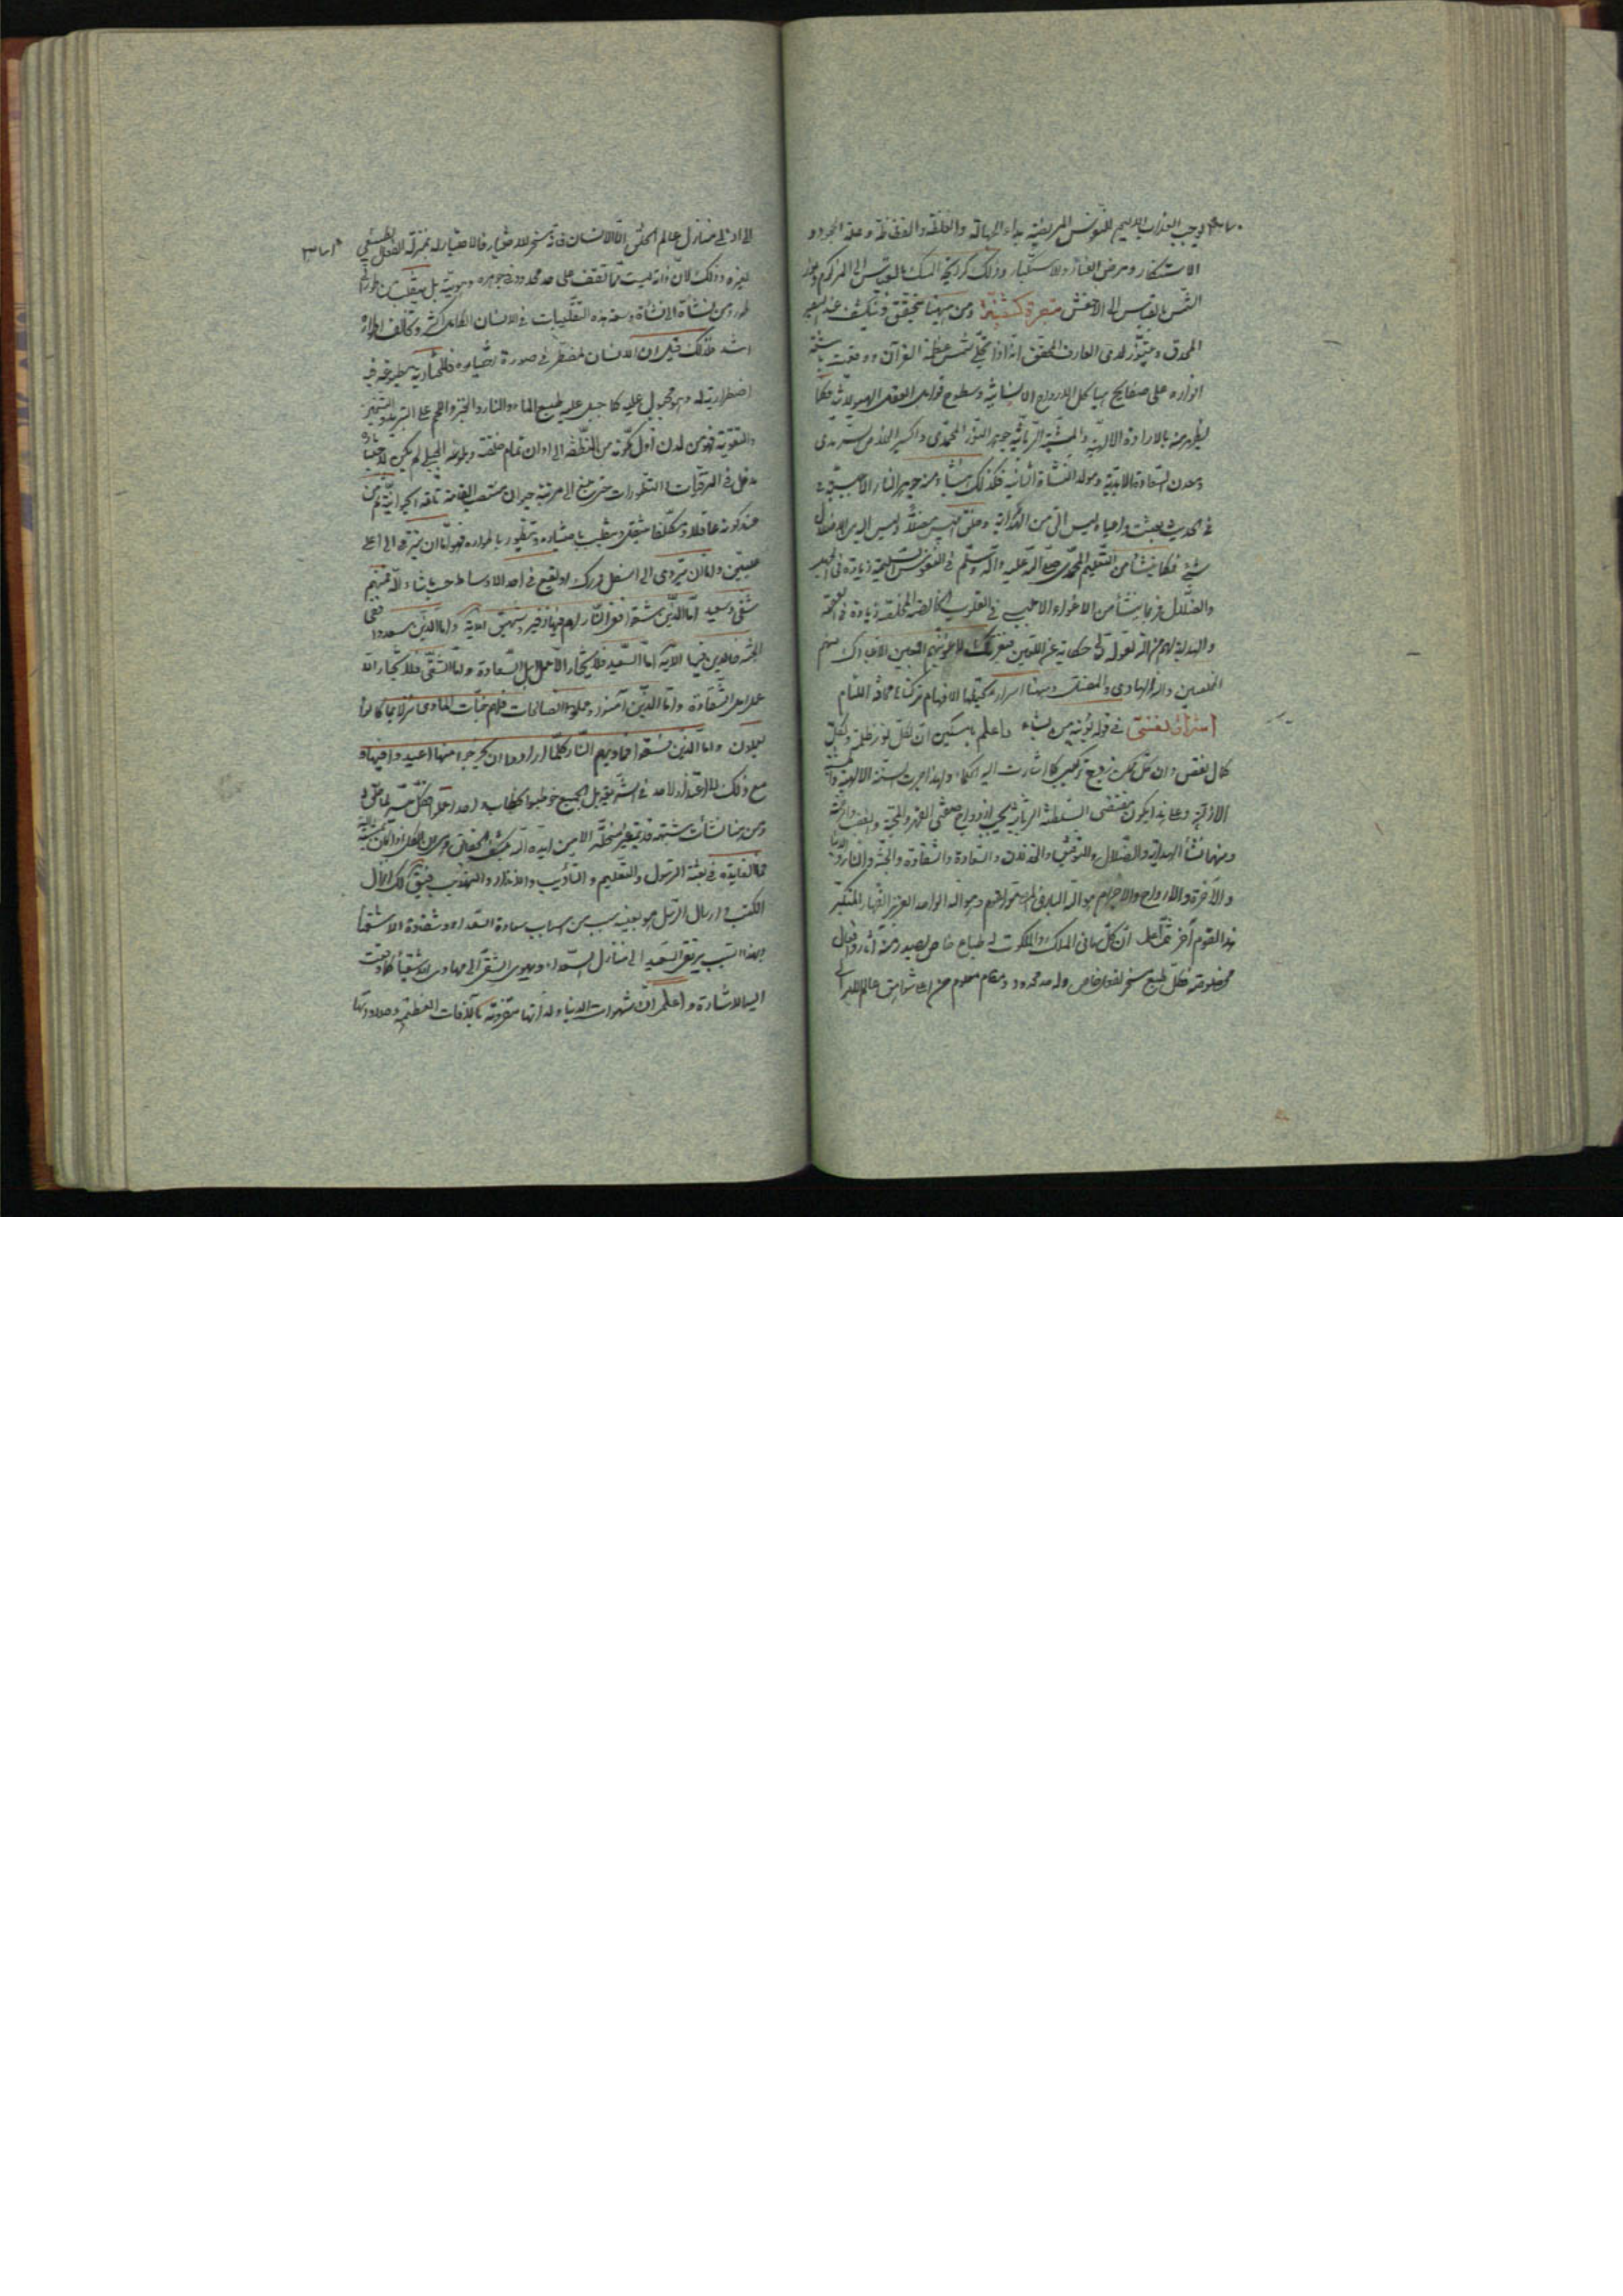 يوجب العذاب الاليم للنفوس المريضة بداء الجهالة والغلظة والفظاظة وعلة الجحود و
الاستنكار ومرض العناد والاستكبار وذلك كرائحة المسك بالقياس الى المزكوم ونور
الشمس بالقياس الى الاعمش تبصرة كشفية ومن ههنا يتحقق وينكشف عند البصير
المحدق ويتنور لدى العارف المحقق انه اذا تجلى شمس عظمة القرآن ووقعت اشعة
انواره على صفايح هياكل الارواح الانسانية وسطوح قوابل العقول الهيولانية فكما
يظهر منه بالارادة الالهية والمشية الربانية جوهر النور المحمدي واكسير السرمدي
ومعدن السعادة الابدية ومولد النشاة الثانية فكذلك ينشأ منه جوهر النار الابليسية
في الحديث بعثت داعيا وليس الي من الهداية وخلق ابليس مضلا وليس اليه من الاضلال
شيء فكما ينشأ من التعليم المحمدي صلى الله عليه وآله وسلم في النفوس السليمة زيادة في
والضلال فربما ينشأ من الاغواء الابليسي في القلوب الخالصة المخلصة زيادة في
والهداية لهم من الله لقوله تعالى حكاية عن اللعين فبعزتك لاغوينهم اجمعين الا عبادك منهم
المخلصين والله الهادي والمضل وههنا اسرار لا يحتملها الافهام تركناها مخافة اللئام
اشراق نفسي في قوله نؤتيه من يشاء فاعلم يا مسكين ان لكل نور ظلمة ولكل
كمال نقص وان كل ممكن زوج تركيبي كما اشارت اليه الحكماء ولهذا جرت السنة الالهية
الازلية وعلى هذا يكون مقتضى السلطنة الربانية بحسب ازدواج صفتي القهر والمحبة واللطف
ومنهما نشأ الهداية والضلال والتوفيق والخذلان والسعادة والشقاوة والجنة والنار والدنيا
والآخرة والارواح والاجرام هو الله الواحد العزيز القهار المتكبر
آخر ثم اعلم ان كل ما في الملك والملكوت له طباع خاص يصدر منه آثار وافعال
مخصوصة فكل طبع مسخر لفعل خاص وله حد محدود ومقام معلوم من اعلى شواهق عالم الامر الى
الى ادنى منازل عالم الخلق الا الانسان فانه مسخر للاختيار فالاختيار له بمنزلة الفعل الطبيعي
لغيره وذلك لان ذاته ليست مما تقف على حد محدود في جوهره وهويته بل ينقلب من طور الى
طور ومن نشأة الى نشأة وسعة هذه التقلبات في الانسان الكامل اكثر وتخالف اطواره
اشد فلذلك قيل ان الانسان لمضطر في صورة اختياره فالمختارية مطبوعة فيه
اضطرارية له وهو مجبول عليه كما جبل عليه طبيع الماء والنار والخبز واللحم على التبريد والتسخين
والتقوية فهو من لدن اول تكونه من النطفة الى اوان تمام خلقته وبلوغه الجبلي لم يكن
يدخل في الترقيات والتطورات حتى يبلغ الى مرتبة حيوان منتصب القامة تامة الحيوانية ثم من
عند كونه عاقلا ومكلفا ينتقل وينقلب باختياره ويتطور باطواره فهو اما ان يترقى الى اعلى
عليين واما ان يتردى الى اسفل درك او يقع في احد الاوساط حسب ما شاء الله فمنهم
شقي وسعيد اما الذين شقوا ففي النار لهم فيها زفير وشهيق الآية واما الذين سعدوا ففي
الجنة خالدين فيها الآية اما السعيد فلا يختار الا عمل اهل السعادة واما الشقي فلا يختار الا
عمل اهل الشقاوة واما الذين آمنوا وعملوا الصالحات فلهم جنات الماوى نزلا بما كانوا
يعملون واما الذين فسقوا فماويهم النار كلما ارادوا ان يخرجوا منها اعيدوا فيها و
مع ذلك لا اعتذار لاحد في الشريعة بل الجميع خوطبوا بخطاب واحد اعملوا فكل ميسر لما خلق له
ومن هنا نشأت شبهة قديمة
فما الفايدة في بعثة الرسول والتعليم والتأديب والانذار والتهذيب فيقال لك انزال
الكتب وارسال الرسل هو بعينه سبب من اسباب سعادة السعداء وشقاوة الاشقياء
بهذا السبب يرتقي السعيد الى منازل السعداء ويهوي الشقي الى مهاوي الاشقياء كما وقعت
اليه الاشارة واعلم ان شهوات الدنيا ولذاتها مقرونة بالآفات العظيمة